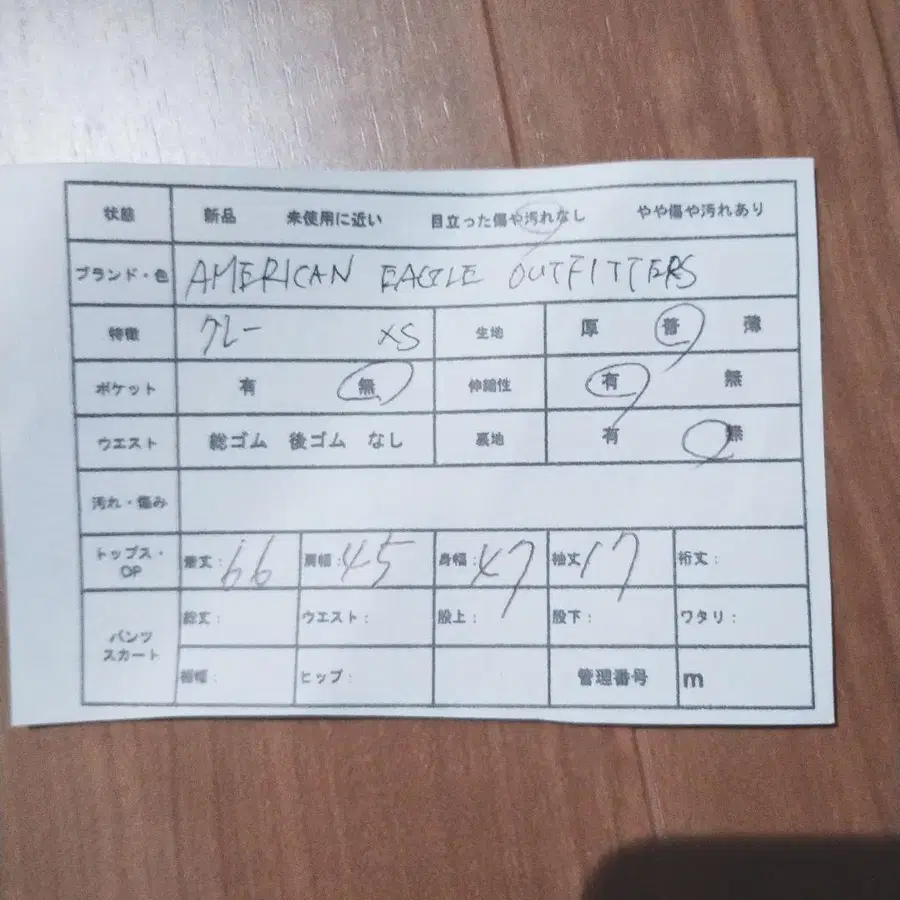 状態 新品 未使用に近い 目立った傷や汚れなし やや傷や汚れあり
ブランド・色 AMERICAN EAGLE OUTFITTERS
特徴 グレー XS 生地 厚 普 薄
ポケット 有 無 伸縮性 有 無
ウエスト 総ゴム 後ゴム なし 裏地 有 無
汚れ・傷み
トップス・OP 着丈:66 肩幅:45 身幅:47 袖丈:17 裄丈:
パンツ スカート 総丈: ウエスト: 股上: 股下: ワタリ:
裾幅: ヒップ: 管理番号 m